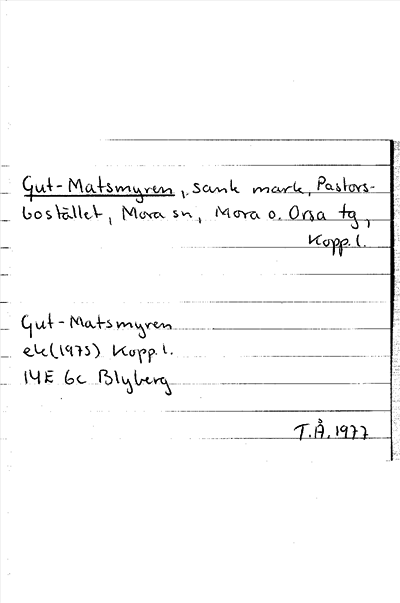 Gut-Matsmyren, sank mark, Pastors-
bostället, Mora sn, Mora o. Orsa tg,
Kopp. l.
Gut-Matsmyren
ek(1975) Kopp. l.
14E 6c Blyberg
T.Å. 1977